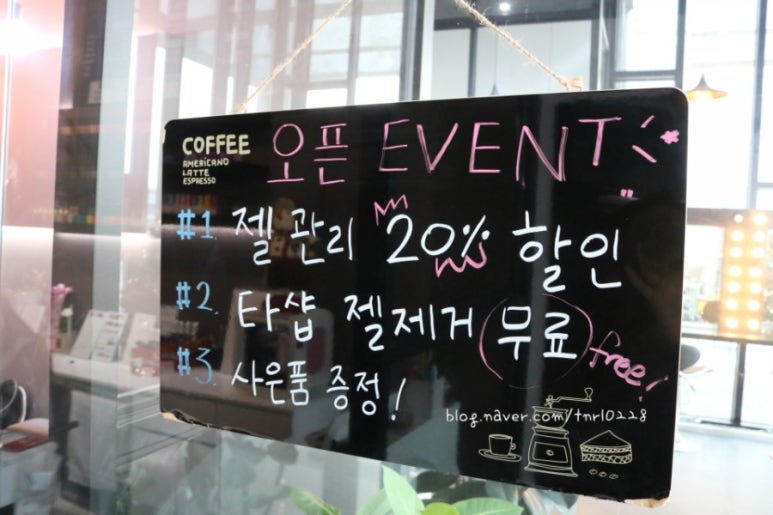 COFFEE
AMERICANO
LATTE
ESPRESSO
오픈 EVENT
#1. 젤 관리 20% 할인
#2. 타샵 젤제거 무료 free!
#3. 사은품 증정!
blog.naver.com/tnrl0228